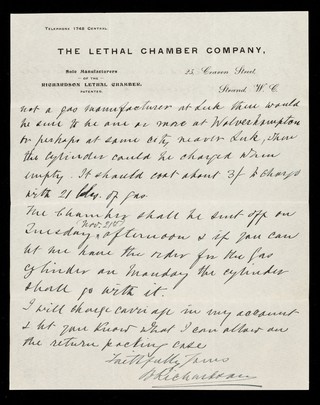 TELEPHONE 1742 CENTRAL.
THE LETHAL CHAMBER COMPANY,
Sole Manufacturers
OF THE
RICHARDSON LETHAL CHAMBER,
PATENTED.
25, Craven Street,
Strand W.C.
not a gas manufacturer at Leek there would
be sure to be one or more at Wolverhampton
or perhaps at some city nearer Leek, where
the cylinder could be charged when
empty. It should cost about 3/- to charge
with 21 lbs. of gas.
The Chamber shall be sent off on
(Nov. 21st)
Tuesday afternoon & if you can
let me have the order for the gas
cylinder on Monday the cylinder
shall go with it.
I will charge carriage in my account
& let you know what I can allow on
the return packing case
Faithfully Yours
Richardson